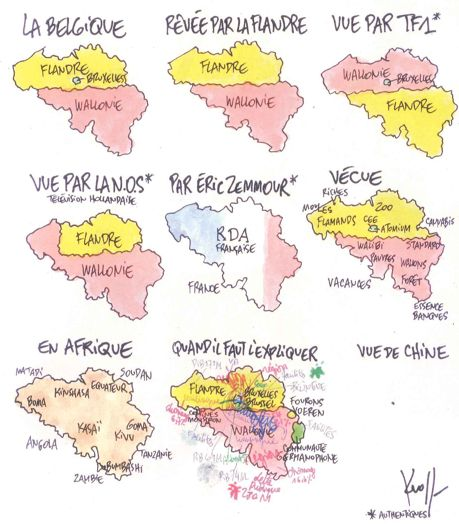 LA BELGIQUE
FLANDRE
BRUXELLES
WALLONIE
RÊVÉE PAR LA FLANDRE
FLANDRE
WALLONIE
VUE PAR TF1*
WALLONIE
BRUXELLES
FLANDRE
VUE PAR LA N.O.S*
TÉLÉVISION HOLLANDAISE
FLANDRE
WALLONIE
PAR ÉRIC ZEMMOUR*
FRANÇAISE
FRANCE
VÉCUE
RICHES
MOULES
ZOO
FLAMANDS
CEE
ATOMIUM
CANNABIS
WALIBI
STANDARD
PAUVRES
WALLONS
FORÊT
VACANCES
ESSENCE
BANQUES
EN AFRIQUE
MATADI
SOUDAN
EQUATEUR
KINSHASA
BOMA
KASAÏ
GOMA
KIVU
ANGOLA
TANZANIE
ZAMBIE
QUAND IL FAUT L'EXPLIQUER
FLANDRE
BRUXELLES
BRUSSEL
FOURONS
VOEREN
WALLONIE
COMMUNAUTÉ
GERMANOPHONE
VUE DE CHINE
Kroll
* AUTHENTIQUES